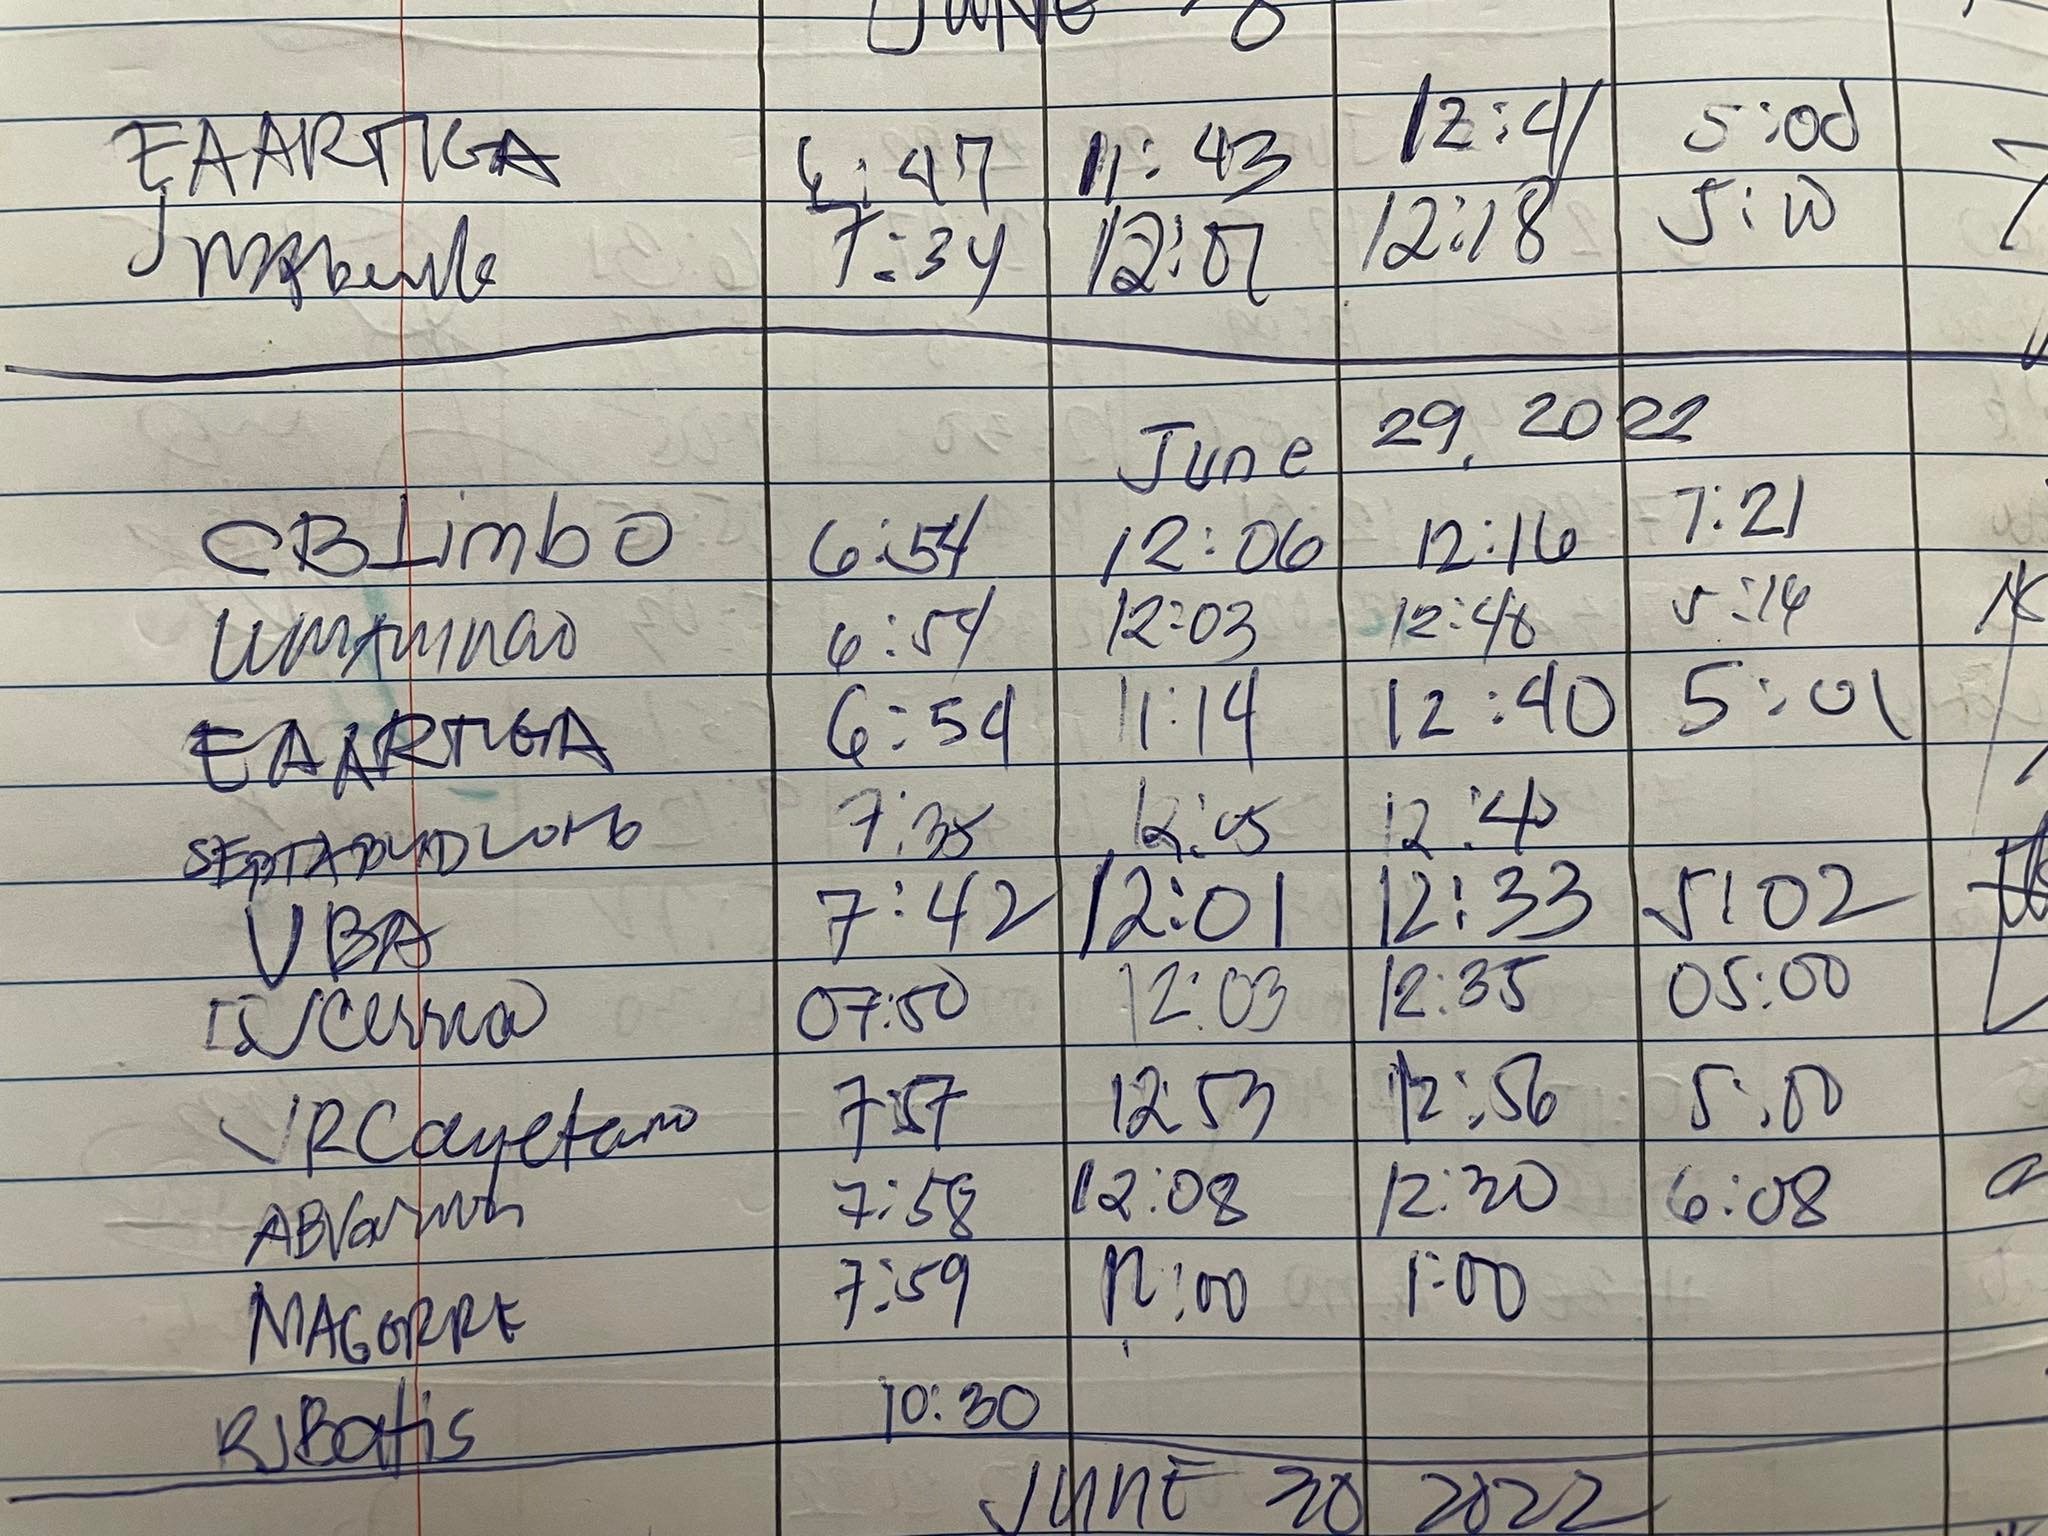 JUNE 8
EAARTIGA 6:47 11:43 12:41 5:00
7:34 12:01 12:18 5:10
June 29, 2022
CBLimbo 6:54 12:06 12:16 7:21
6:54 12:03 12:48 5:14
EAARTIGA 6:54 11:14 12:40 5:01
7:35 12:05 12:40
VBA 7:42 12:01 12:33 5:02
07:50 12:03 12:35 05:00
VRCayetano 7:57 12:53 12:56 5:00
7:58 12:08 12:30 6:08
MAGORRE 7:59 12:00 1:00
RJBatis 10:30
JUNE 30 2022